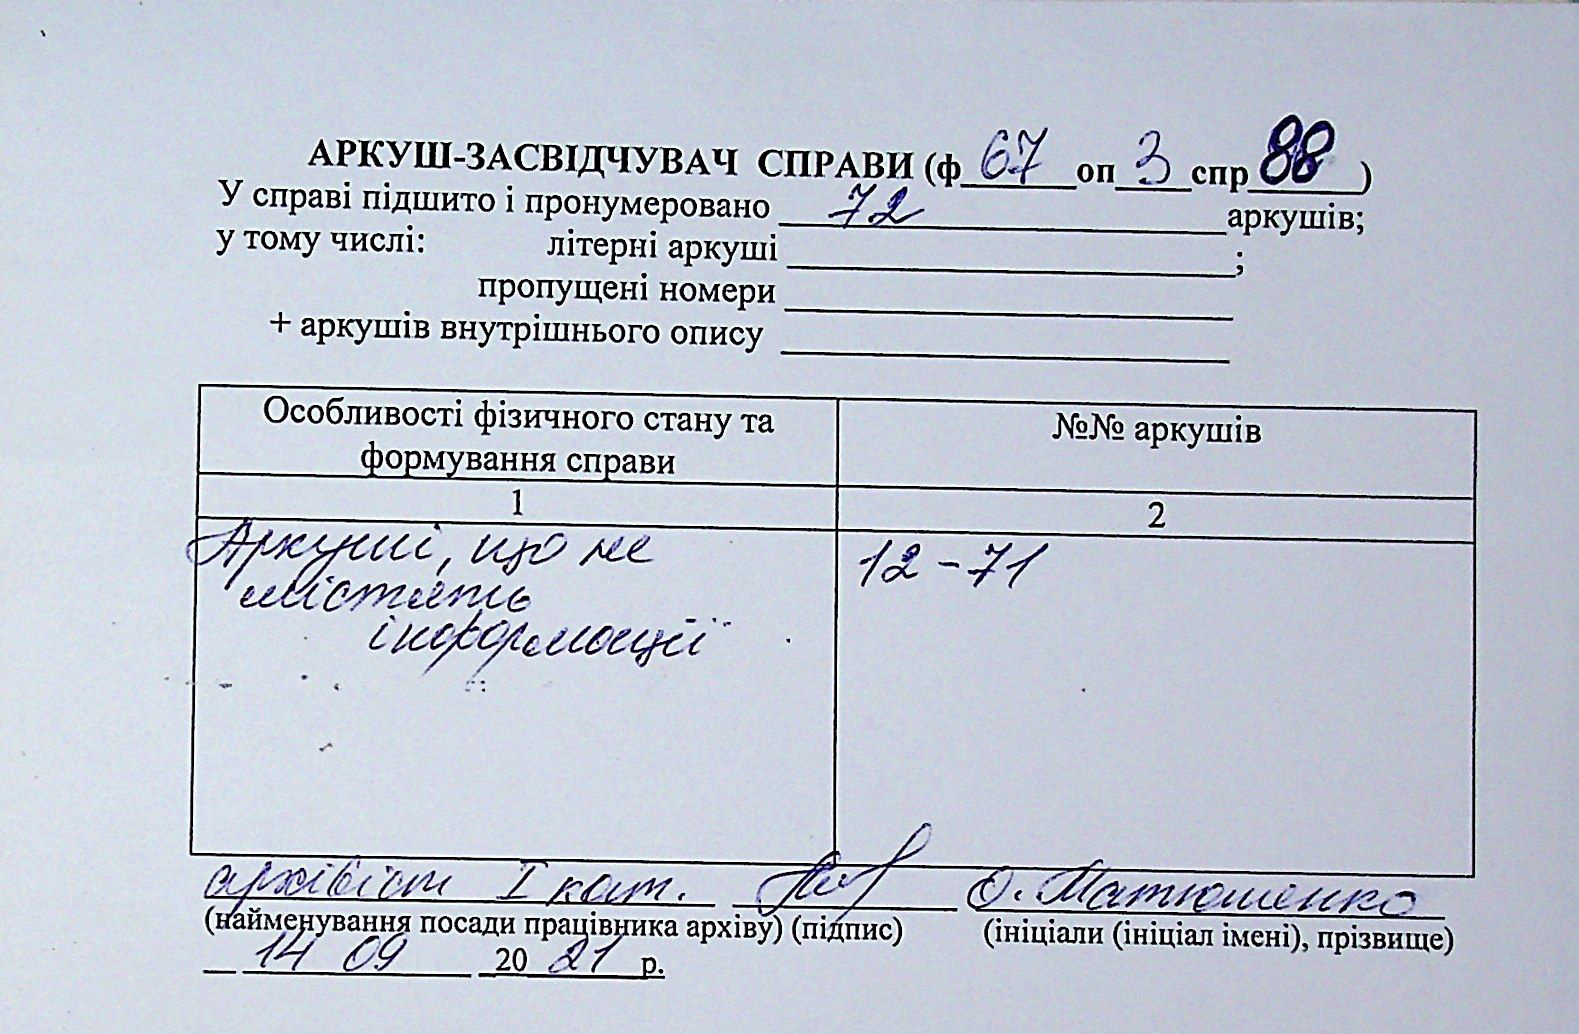 АРКУШ-ЗАСВІДЧУВАЧ СПРАВИ (ф 67 оп 3 спр 88 )
У справі підшито і пронумеровано 72 аркушів;
у тому числі: літерні аркуші ;
пропущені номери
+ аркушів внутрішнього опису
Особливості фізичного стану та
формування справи
№№ аркушів
1
2
Аркуші, що не
містять
інформації
12-71
архівіст І кат. О. Матюшенко
(найменування посади працівника архіву) (підпис) (ініціали (ініціал імені), прізвище)
14 09 20 21 р.